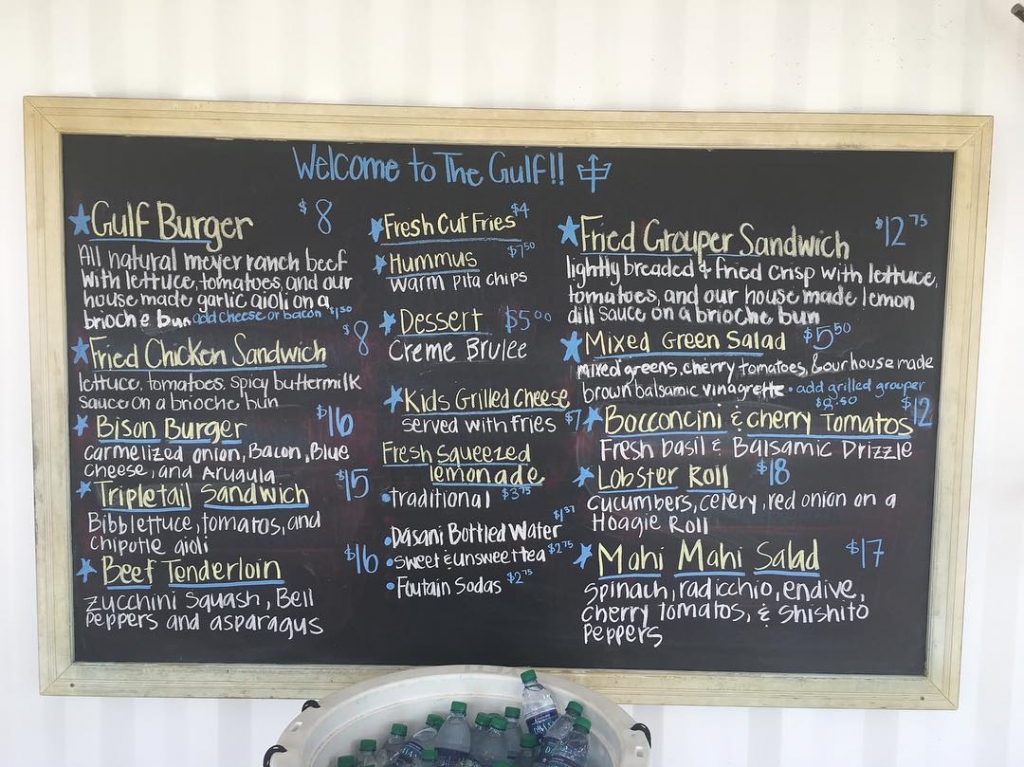 Welcome to The Gulf!!
Gulf Burger $8
All natural meyer ranch beef
with lettuce, tomatoes, and our
house made garlic aioli on a
brioche bun add cheese or bacon $1.50
Fried Chicken Sandwich $8
lettuce, tomatoes, spicy buttermilk
sauce on a brioche bun
Bison Burger $16
carmelized onion, Bacon, Blue
cheese, and Arugula
Tripletail Sandwich $15
Bibb lettuce, tomatos, and
chipotle aioli
Beef Tenderloin $16
zucchini squash, Bell
Peppers and asparagus
Fresh Cut Fries $4
Hummus $7.50
warm pita chips
Dessert $5.00
Creme Brulee
Kids Grilled Cheese
served with fries $7
Fresh Squeezed
lemonade
•traditional $3.75
•Dasani Bottled Water
•sweet & unsweet tea $2.75
•Foutain Sodas $2.75
Fried Grouper Sandwich $12.75
lightly breaded & fried crisp with lettuce,
tomatoes, and our house made lemon
dill sauce on a brioche bun
Mixed Green Salad $5.50
mixed greens, cherry tomatoes, & our house made
brown balsamic vinagrette • add grilled grouper
Bocconcini & cherry Tomatos $12
Fresh basil & Balsamic Drizzle
Lobster Roll $18
cucumbers, celery, red onion on a
Hoagie Roll
Mahi Mahi Salad $17
spinach, radicchio, endive,
cherry tomatos, & shishito
Peppers